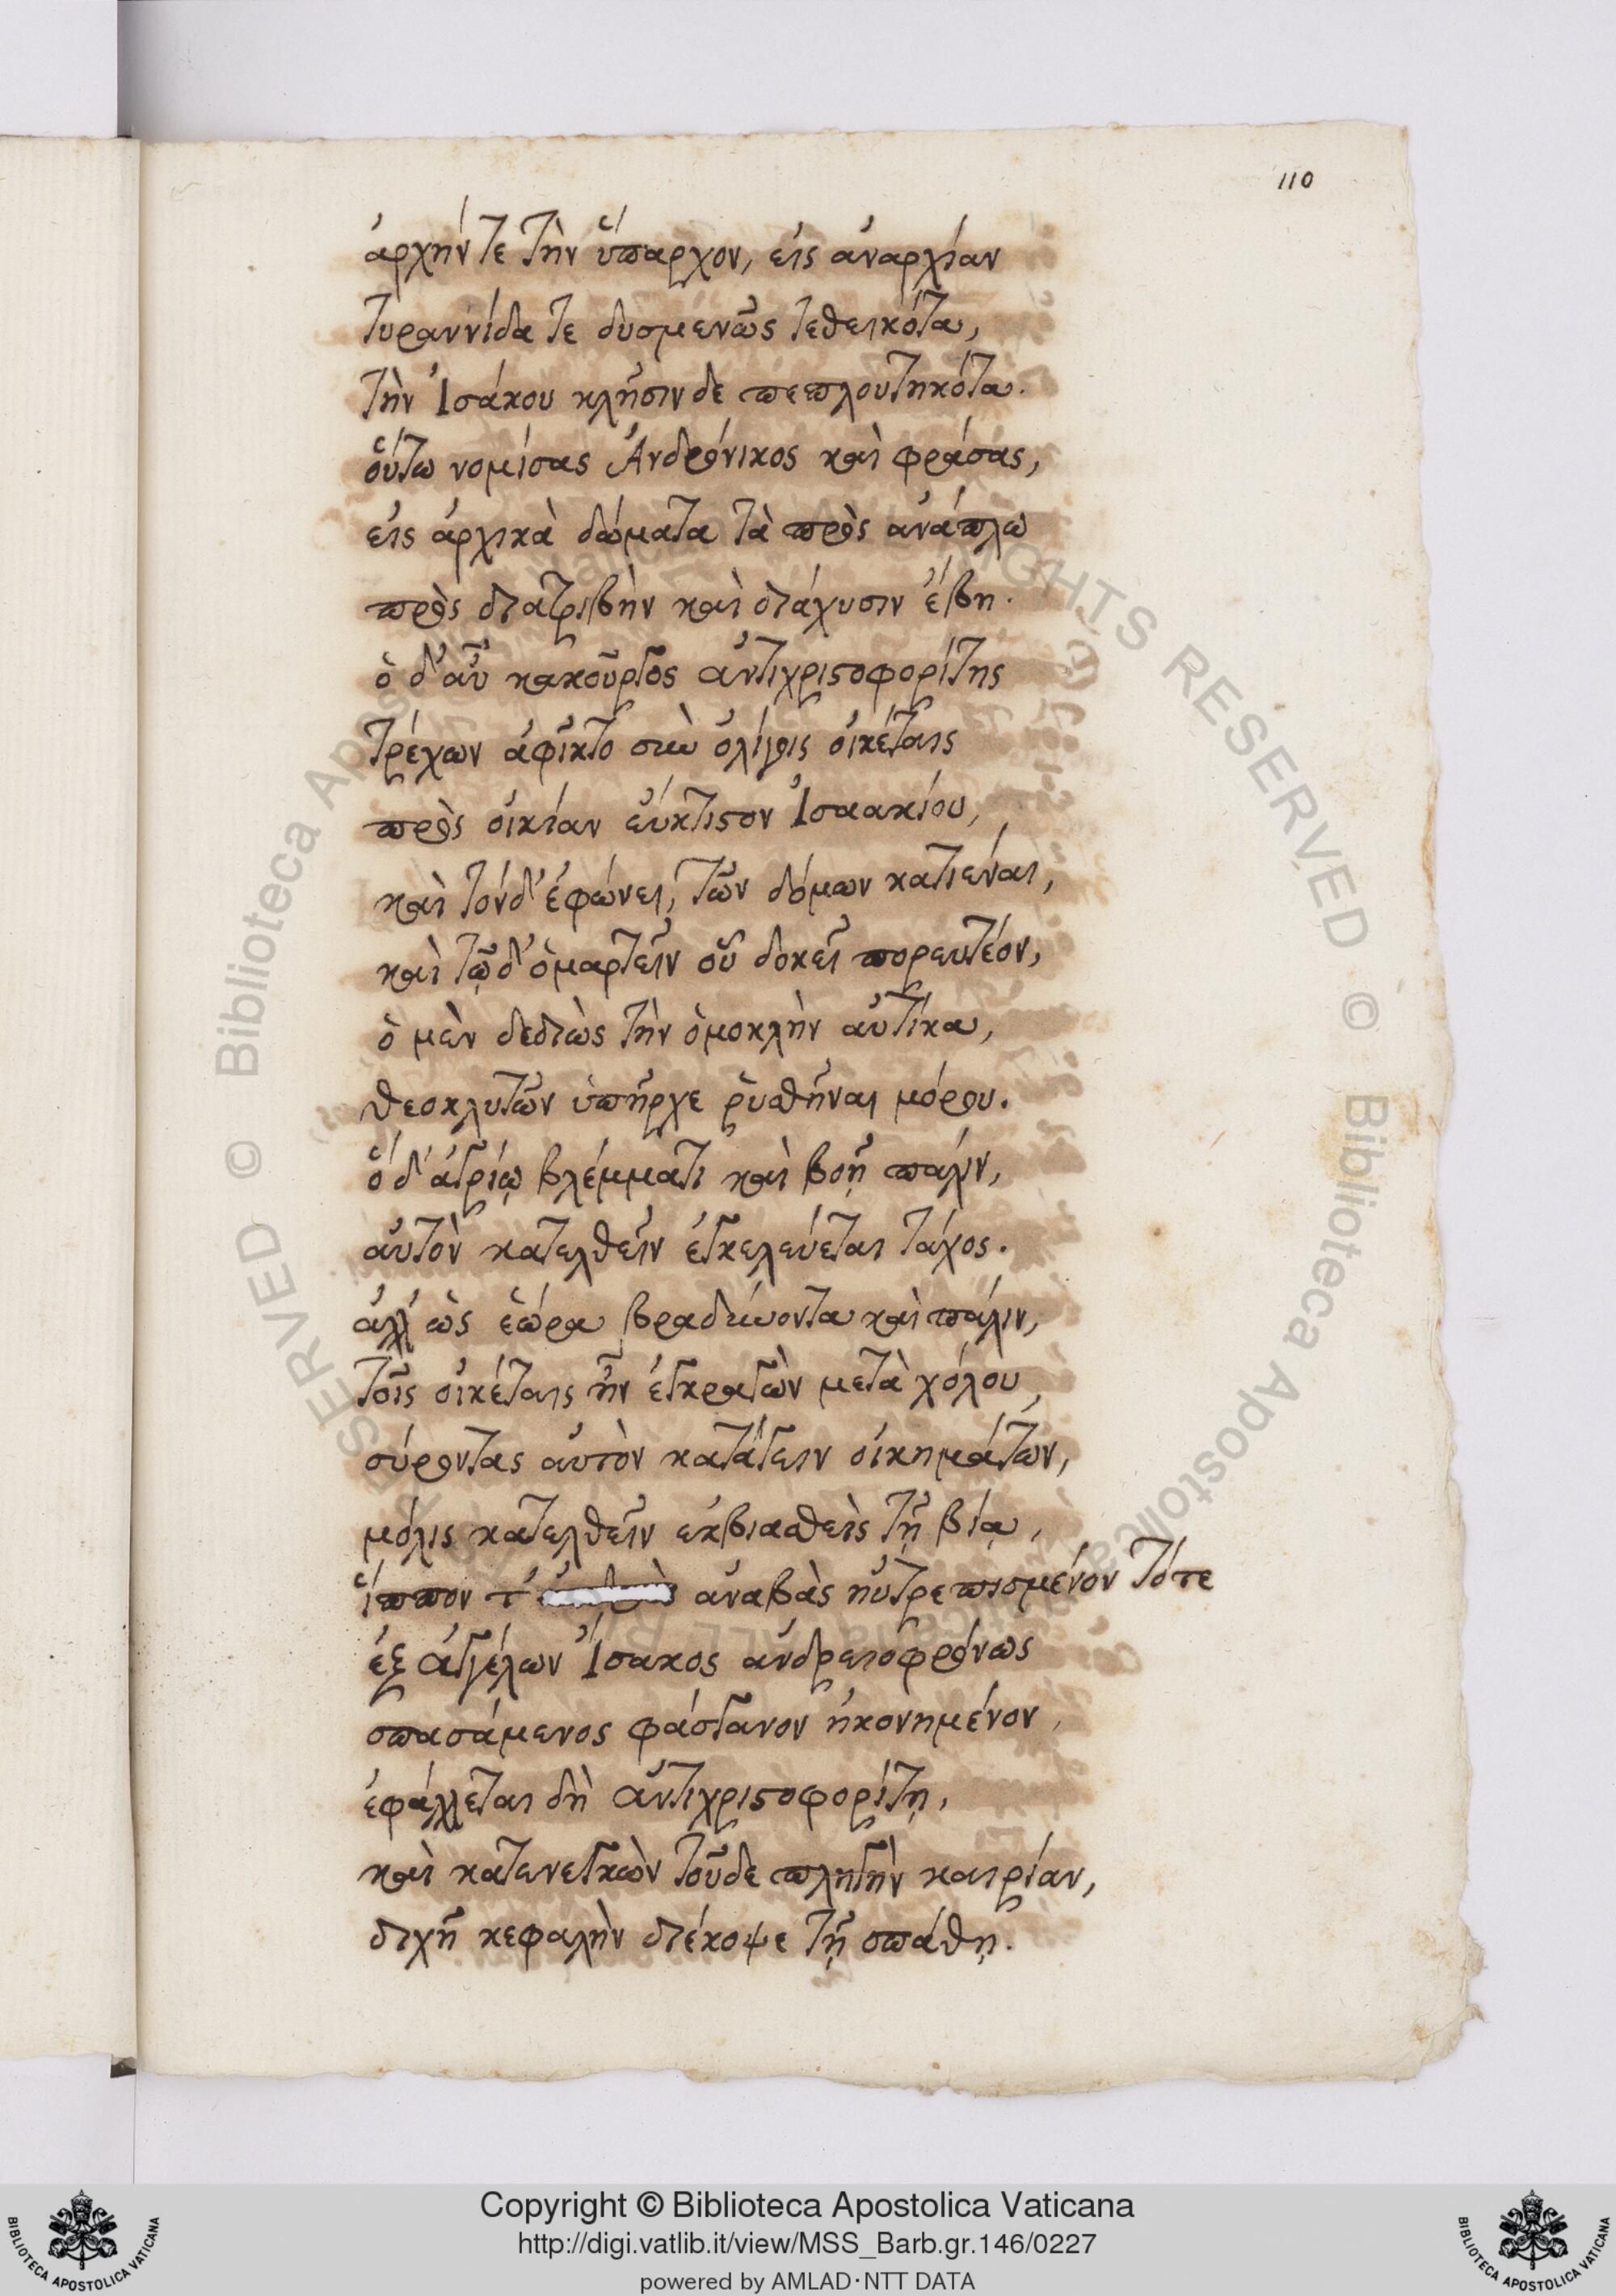 110
ἀρχήν τε τὴν ὕπαρχον, εἰς ἀναρχίαν
τυραννίδα τε δυσμενῶς τεθεικότα,
τὴν Ἰσάκου κλῆσιν δε πεπλουτηκότα.
οὕτω νομίσας Ἀνδρόνικος καὶ φράσας,
εἰς ἀρχικὰ δώματα τὰ πρὸς ἀνάπλω
πρὸς διατριβὴν καὶ διάχυσιν ἔβη.
ὁ δ' αὖ κακοῦργος ἀντιχριστοφορίτης
τρέχων ἀφῖκτο σὺν ὀλίγοις οἰκέταις
πρὸς οἰκίαν εὔκτιστον Ἰσαακίου,
καὶ τόνδ' ἐφώνει, τῶν δόμων κατιέναι,
καὶ τῷδ' ὁμαρτεῖν οὗ δοκεῖ πορευτέον,
ὁ μὲν δεδιὼς τὴν ὁμοκλὴν αὐτίκα,
θεοκλυτῶν ὑπῆρχε ῥυσθῆναι μόρου.
ὁ δ' ἀγρίῳ βλέμματι καὶ βοῇ πάλιν,
αὐτὸν κατελθεῖν ἐγκελεύεται τάχος.
ἀλλ' ὡς ἑώρα βραδύνοντα καὶ πάλιν,
τοῖς οἰκέταις ἦν ἐγκραγὼν μετὰ χόλου,
σύροντας αὐτὸν κατάγειν οἰκημάτων,
μόλις κατελθεῖν ἐκβιασθεὶς τῇ βίᾳ,
ἵππον τ' ἀναβὰς ηὐτρεπισμένον τότε
ἐξ ἀγγέλων Ἴσακος ἀνδρειοφρόνως
σπασάμενος φάσγανον ἠκονημένον,
ἐφάλλεται δὴ ἀντιχριστοφορίτῃ,
καὶ κατενεγκὼν τοῦδε πληγὴν καιρίαν,
διχῇ κεφαλὴν διέκοψε τῇ σπάθῃ.
Copyright © Biblioteca Apostolica Vaticana
http://digi.vatlib.it/view/MSS_Barb.gr.146/0227
powered by AMLAD·NTT DATA